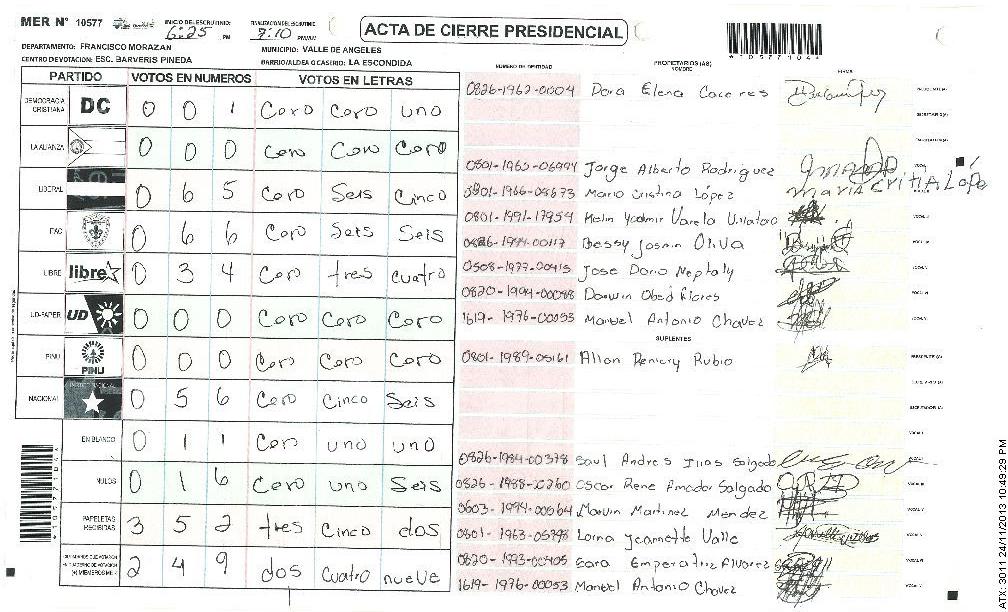 MER Nº 10577 INICIO DE ESCRUTINIO: 6:25 PM FINALIZACION DEL ESCRUTINIO 7:10 PM/AM ACTA DE CIERRE PRESIDENCIAL
DEPARTAMENTO: FRANCISCO MORAZAN MUNICIPIO: VALLE DE ANGELES
CENTRO DE VOTACION: ESC. BARVERIS PINEDA BARRIO/ALDEA O CASERIO: LA ESCONDIDA
*10577104*
PARTIDO VOTOS EN NUMEROS VOTOS EN LETRAS
DEMOCRACIA CRISTIANA DC 0 0 1 Cero Cero uno
LA ALIANZA 0 0 0 Cero Cero Cero
LIBERAL 0 6 5 Cero Seis Cinco
PAC 0 6 6 Cero Seis Seis
LIBRE libre 0 3 4 Cero tres cuatro
UD-FAPER UD 0 0 0 Cero Cero Cero
PINU PINU 0 0 0 Cero Cero Cero
NACIONAL 0 5 6 Cero Cinco Seis
EN BLANCO 0 1 1 Cero uno uno
NULOS 0 1 6 Cero uno Seis
PAPELETAS RECIBIDAS 3 5 2 tres Cinco dos
2 4 9 dos Cuatro nueve
NUMERO DE IDENTIDAD PROPIETARIOS (AS) NOMBRE FIRMA
0826-1962-0004 Dora Elena Caceres PRESIDENTE (A)
SECRETARIO (A)
ESCRUTADOR (A)
0801-1965-06994 Jorge Alberto Rodriguez VOCAL I
0801-1966-08673 Maria Cristina López Maria Cristina López
0801-1991-17954 Kelin Yadmir Varela Villatoro VOCAL III
0826-1994-00117 Bessy Jasmin Oliva VOCAL IV
0508-1977-00415 Jose Dario Neptaly VOCAL V
0820-1994-00088 Darwin Obed Flores VOCAL VI
1619-1976-00053 Manuel Antonio Chavez VOCAL VII
SUPLENTES
0801-1989-05161 Allan Denery Rubio PRESIDENTE (A)
SECRETARIO (A)
ESCRUTADOR (A)
VOCAL I
0826-1984-00378 Saul Andres Salgado VOCAL II
0826-1988-00260 Oscar Rene Amador Salgado VOCAL III
0603-1994-00564 Marvin Martinez Mendez VOCAL IV
0801-1963-05798 Lorna Jeannette Valle VOCAL V
0820-1993-00405 Sara Emperatriz Alvarez VOCAL VI
1619-1976-00053 Manuel Antonio Chavez VOCAL VII
24/11/2013 10:49:29 PM